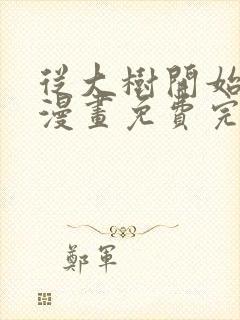 從大樹開始
漫畫免費完
鄭軍